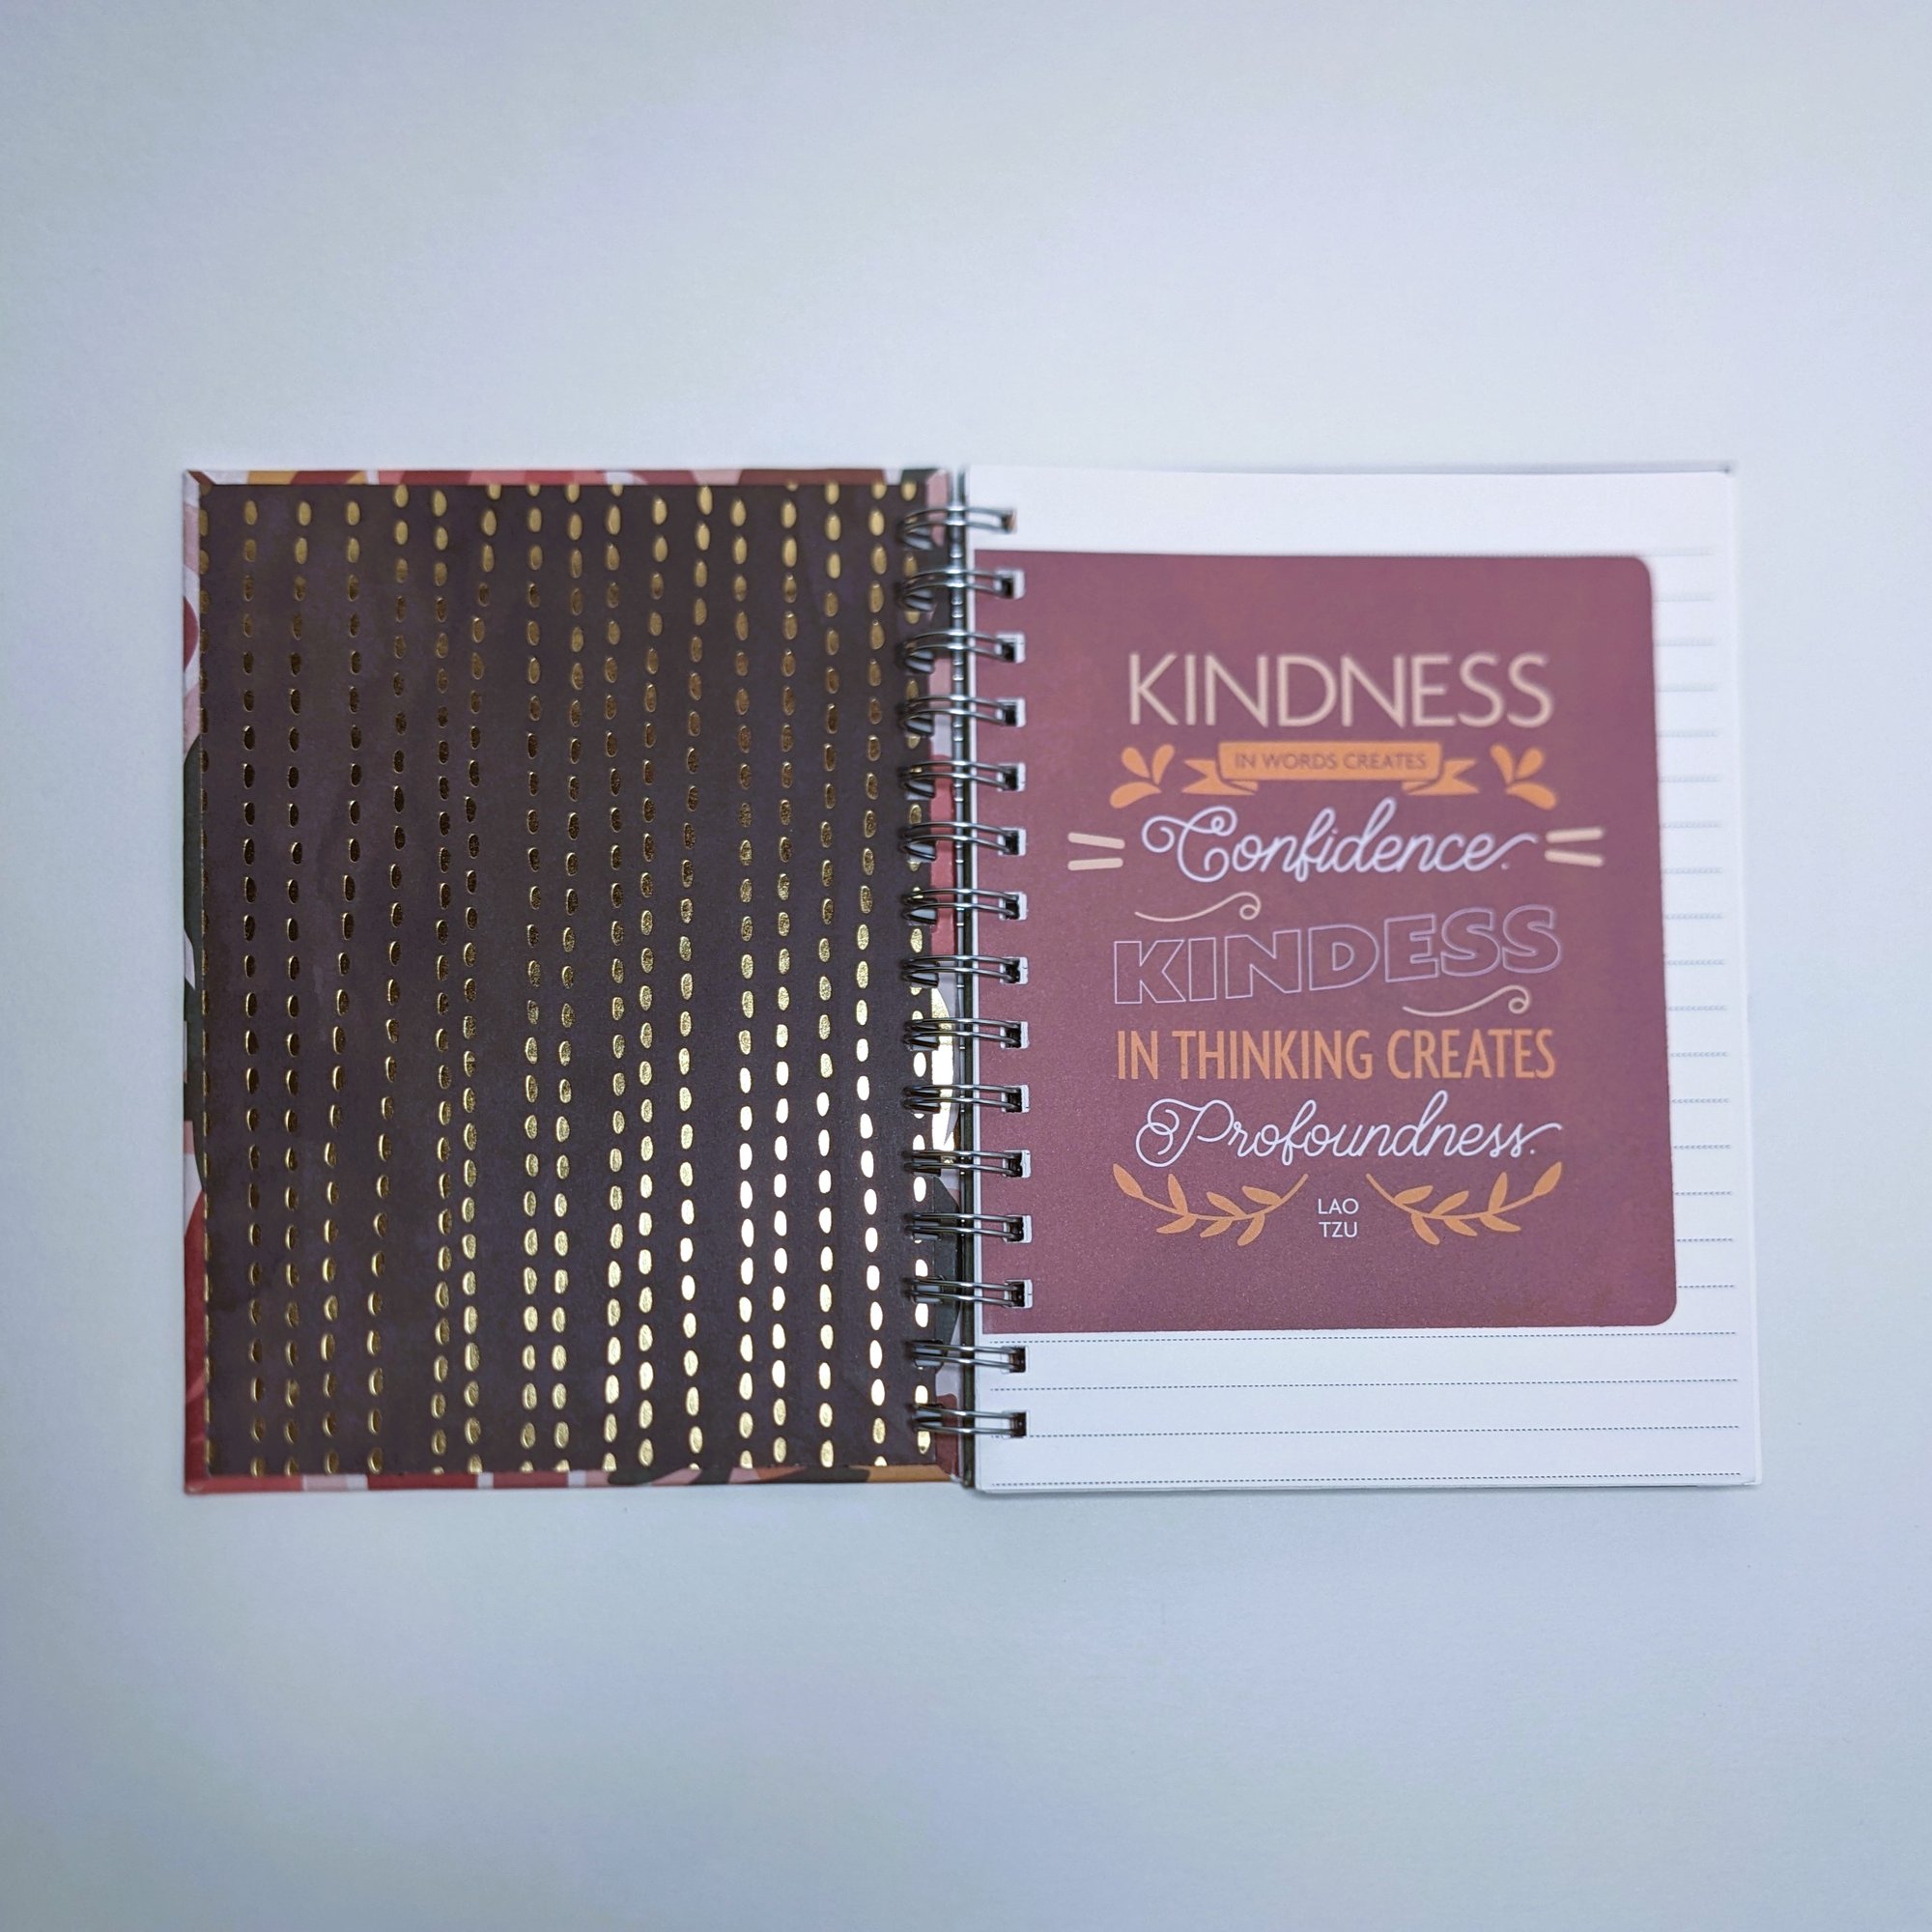 KINDNESS
IN WORDS CREATES
Confidence.
KINDESS
IN THINKING CREATES
Profoundness.
LAO
TZU